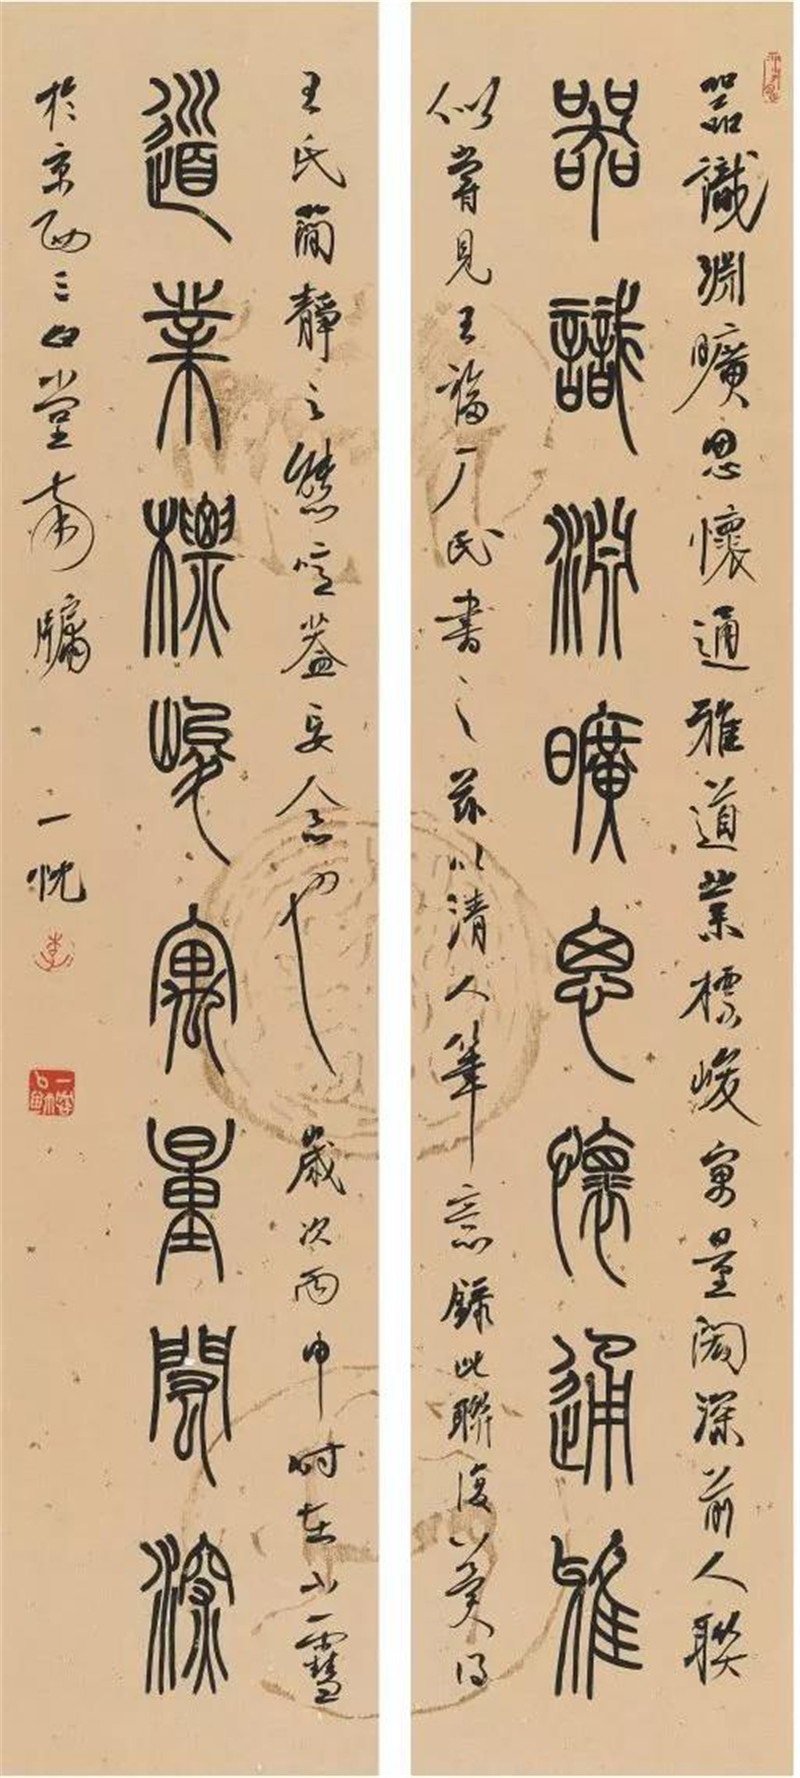 器識淵曠思懷通雅道業標峻寓量閎深前人聯
器識淵曠思懷通雅
似嘗見王福厂氏書之茲以清人筆意錄此聯復冀得
王氏簡靜之態噫蓋妄念也歲次丙申時在小雪
道業標峻寓量閎深
於京西三白堂南牖一忱